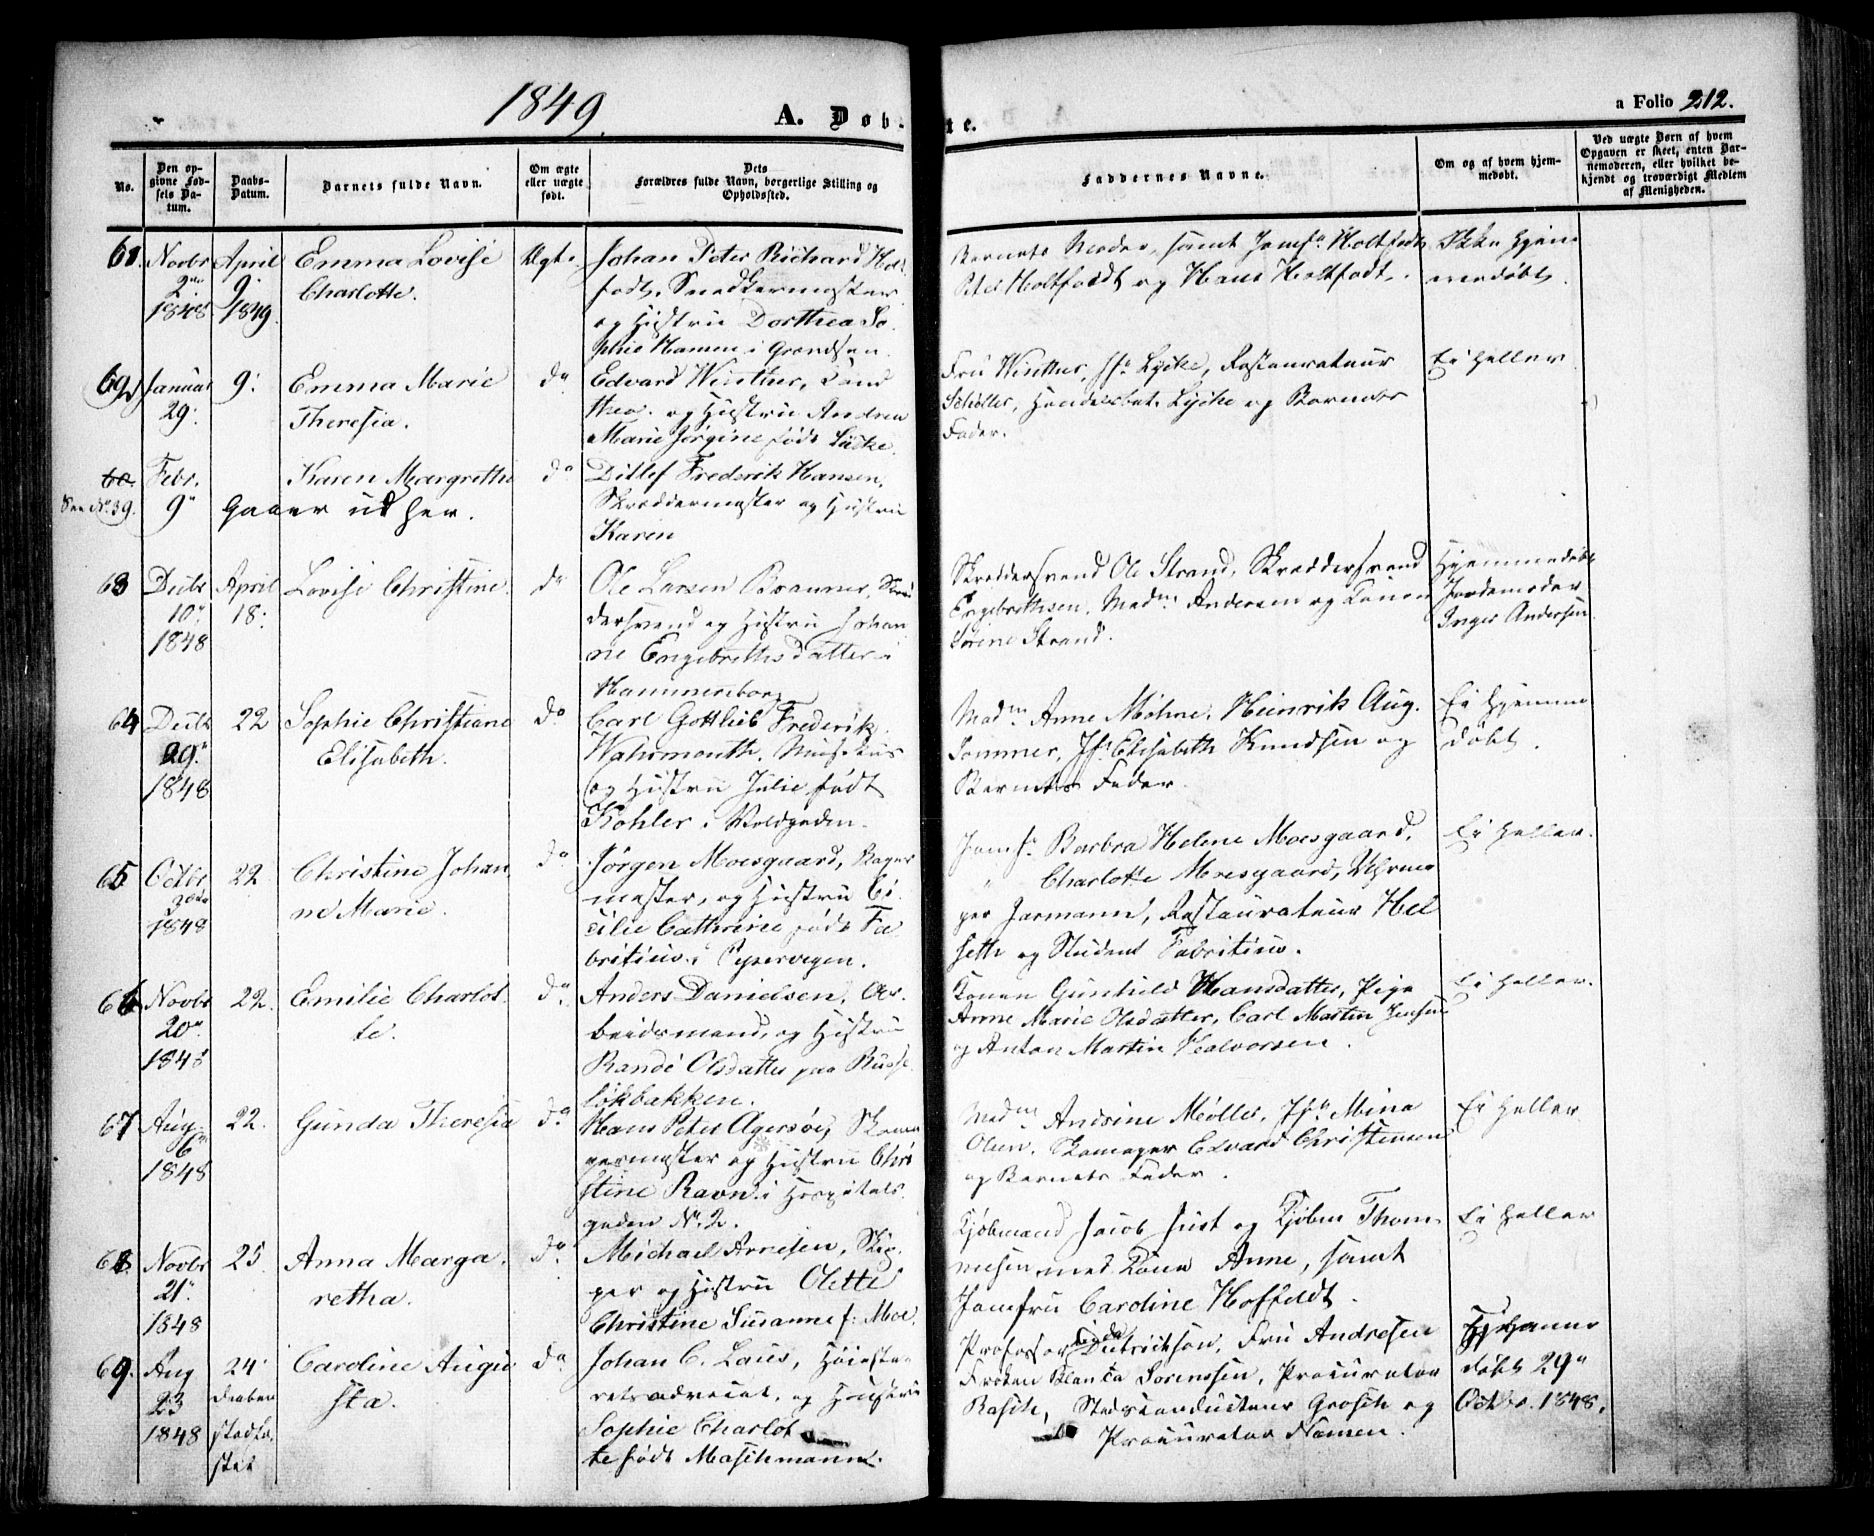 1849.
A. Døb-
te.
a Folio 212.
No.
Den op-
givne Fød-
sels Da-
tum.
Daabs-
Datum.
Barnets fulde Navn.
Om ægte
eller uægte
født.
Dets
Forældres fulde Navn, borgerlige Stilling og
Opholdssted.
Faddernes Navne.
Om og af hvem hjem-
medøbt.
Ved uægte Børn af hvem
Opgaven er skeet, enten Bar-
nemoderen, eller hvilket be-
kjendt og troværdigt Medlem
af Menigheden.
61. Novbr 2den 1848
April 9. 1849.
Emma Lovise
Charlotte.
Ægte
Johan Peter Richard Holt
fodt, Snedkermester
og Hustru Dorthea So-
phie Hansen i Grændsen.
Barnets Moder, samt Jomfr Holtfodt
Holtfodt og Hans Holtfodt.
Ikke hjem
medøbt.
62 Januar 29.
9.
Emma Marie
Theresia.
do
Edvard Winther,
og Hustru Andrea
Marie Jørgine født Lycke.
Fru Winther, Jfr Lycke, Restaurateur
Schøller, Handelsbet. Lycke og Barnets
Fader.
Ei heller
See No 39.
Febr. 9
Karen Margrethe
Gaaer ud her.
do
Ditlef Frederik Hansen,
Skræddermester og Hustru
Karen
63 Decbr 10. 1848
April 18.
Lovise Christine.
do
Ole Larsen Braaner, Skræd
dersvend og Hustru Johan
ne Engebrethsdatter i
Hammersborg
Skræddersvend Ole Strand, Skræddersvend
Engebrethsen, Madme Andersen og Konen
Sørene Strand.
Hjemmedøbt
Jordemoder
Inger Andersen
64 Decbr 29. 1848
22
Sophie Christiane
Elisabeth.
do
Carl Gottlieb Frederik
Wahrmouth, Musikus
og Hustru Julie født
Kohler i Voldgaden.
Madme Anne Møhne, Heinrik Aug.
Sommer, Jfr Elisabeth Knudsen og
Barnets Fader.
Ei hjemme
døbt.
65. Octbr 1848
22
Christine Johan
ne Marie.
do
Jørgen Moesgaard, Bager
mester, og Hustru Ce-
cilie Cathrine født Fa
britius i Pipervigen.
Jomfr Barbra Helene Moesgaard,
" Charlotte Moesgaard, Uhrma
ger Jarmann, Restaurateur Hel
seth og Student Fabritius.
Ei heller.
66 Novbr 20. 1848
22.
Emilie Charlot-
te.
do
Anders Danielsen, Ar-
beidsmand, og Hustru
Rande Olsdatter paa Ruse
løkbakken.
Konen Gunhild Hansdatter, Pige
Anne Marie Olsdatter, Carl Martin Jensen
og Anton Martin Halvorsen.
Ei heller.
67 Aug. 6 1848
22.
Gunda Theresia
do
Hans Peter Agersøe, Skoma
germester og Hustru Chri
stine Ravn i Hospitals-
gaden No. 2.
Madme Andrine Møller, Jfr Mina
Olsen, Skomager Edvard Christensen
og Barnets Fader.
Ei heller
68. Novbr 21. 1848
25.
Anna Marga
retha.
do
Michael Arnesen, Skip-
per og Hustru Olette
Christine Susanne f: Moe.
Kjøbmand Jacob Just og Kjøbm Thom-
mesen med Kone Anne, samt
Jomfru Caroline Hoffeldt.
Ei heller
69. Aug 23 1848
24.
Caroline Augu
sta.
do
Johan C. Laus, Høieste-
retsadvocat, og Hustru
Sophie Charlot
te født Maschmann.
Professor Dietrichson, Fru Andresen
Frøken Blanca Sørenssen, Procurator
Rasch, Stadsconducteur Grosch og
Procurator Hansen.
Hjemme
døbt 29
Octbr. 1848.